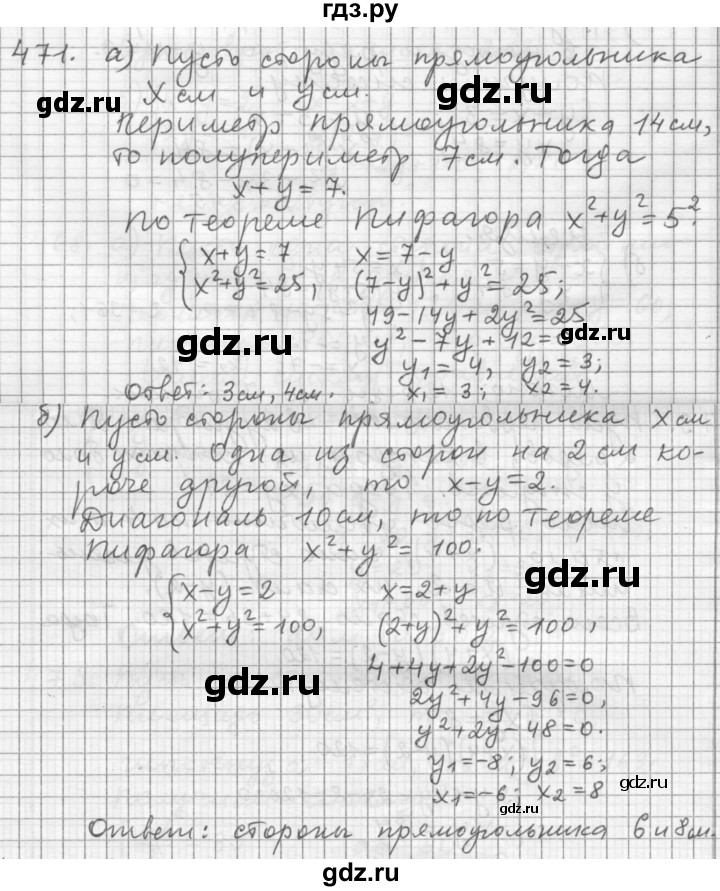 гдз.ру
471. а) Пусть стороны прямоугольника
x см и y см.
gdz.ru
gdz.ru
Периметр прямоугольника 14 см,
то полупериметр 7 см. Тогда
x+y=7.
По теореме Пифагора x²+y²=5².
{ x+y=7   x=7-y
x²+y²=25,   (7-y)²+y²=25;
49-14y+2y²=25
gdz.ru
gdz.ru
y²-7y+12=0
y₁=4, y₂=3;
x₁=3; x₂=4.
Ответ: 3см, 4см.
б) Пусть стороны прямоугольника x см
и y см. Одна из сторон на 2 см ко-
роче другой, то x-y=2.
Диагональ 10 см, то по теореме
Пифагора x²+y²=100.
gdz.ru
{ x-y=2   x=2+y
x²+y²=100,   (2+y)²+y²=100,
4+4y+2y²-100=0
gdz.ru
2y²+4y-96=0,
y²+2y-48=0.
y₁=-8; y₂=6;
gdz.ru
x₁=-6; x₂=8
gdz.ru
Ответ: стороны прямоугольника 6 и 8 см.
gdz.ru